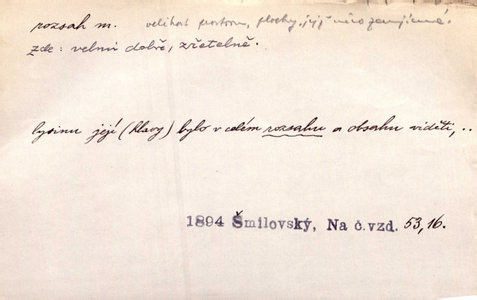 rozsah m. velikost prostoru, plochy, jíž něco zaujímá.
zde: velmi dobře, zřetelně.
lysinu její (hlavy) bylo v celém rozsahu a obsahu viděti,..
1894 Šmilovský, Na č.vzd. 53,16.